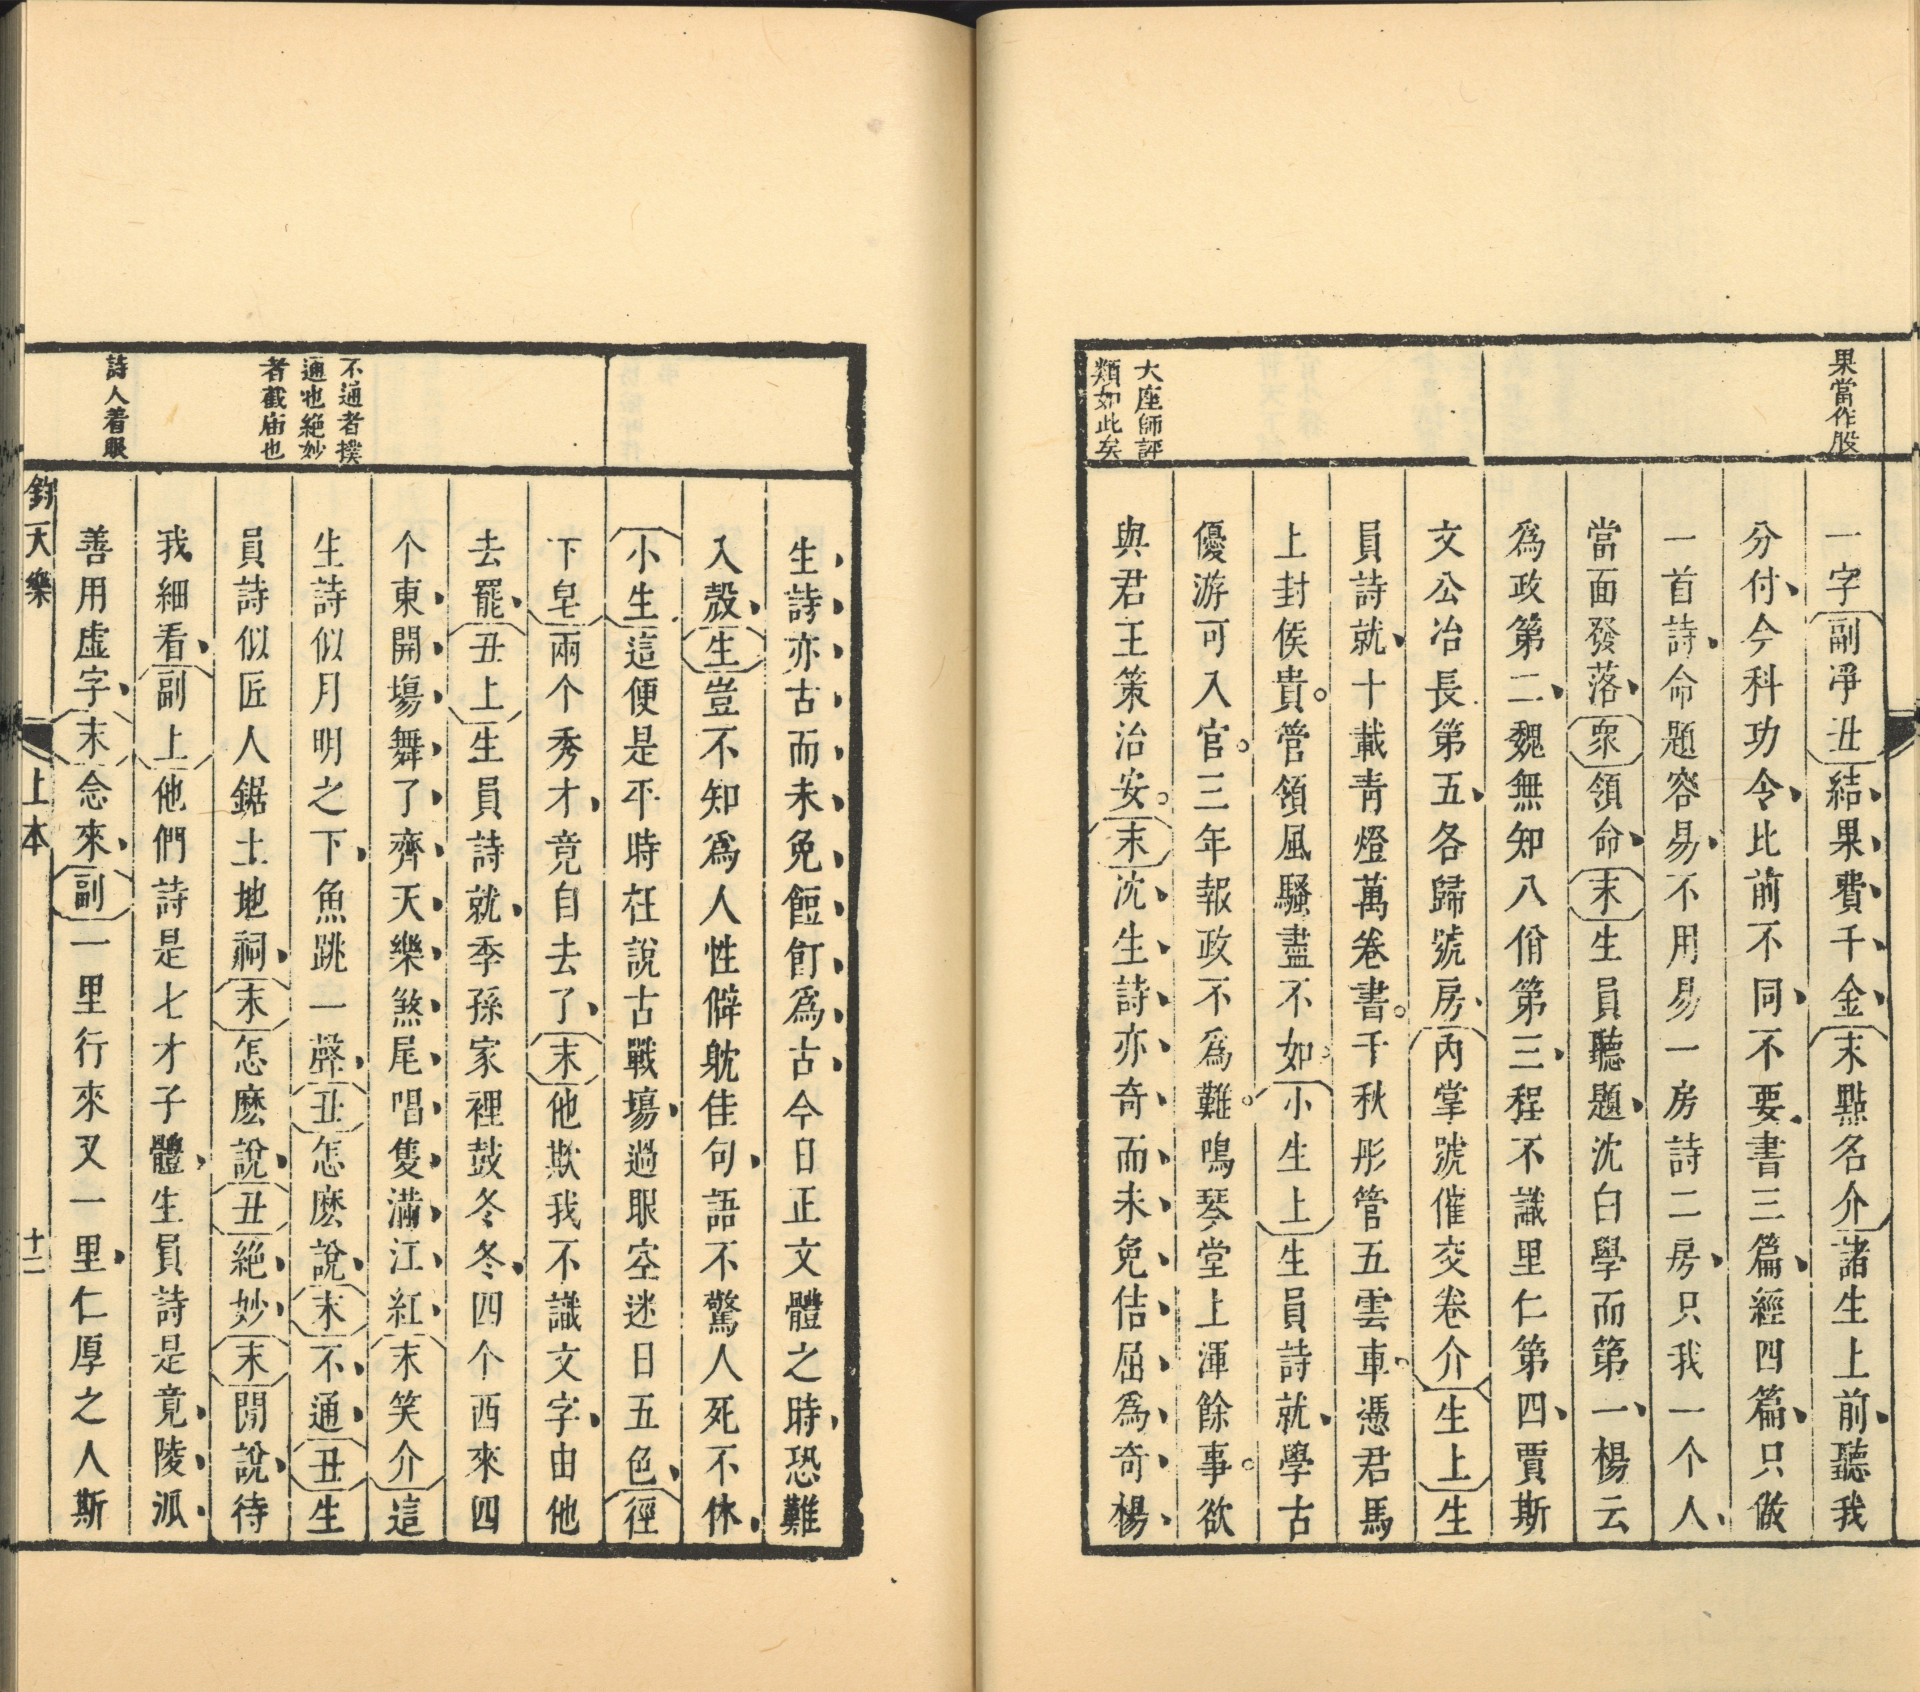 果當作股
大座師評
類如此矣
一字副凈丑結果費千金末點名介諸生上前聽我
分付今科功令比前不同不要書三篇經四篇只做
一首詩命題容易不用易一房詩二房只我一个人
當面發落衆領命末生員聽題沈白學而第一楊云
爲政第二魏無知八佾第三程不識里仁第四賈斯
文公冶長第五各歸號房內掌號催交卷介生上生
員詩就十載青燈萬卷書千秋彤管五雲車憑君馬
上封侯貴管領風騷盡不如小生上生員詩就學古
優游可入官三年報政不爲難鳴琴堂上渾餘事欲
與君王策治安末沈生詩亦奇而未免佶屈爲奇楊
不通者撲
通也絕妙
者截庙也
詩人着眼
生詩亦古而未免餖飣爲古今日正文體之時恐難
入殼生豈不知爲人性僻躭佳句語不驚人死不休
小生這便是平時在說古戰場過眼空迷日五色徑
下皂兩个秀才竟自去了末他欺我不識文字由他
去罷丑上生員詩就季孫家裡鼓冬冬四个西來四
个東開塲舞了齊天樂煞尾唱隻滿江紅末笑介這
生詩似月明之下魚跳一聲丑怎麽說末不通丑生
員詩似匠人鋸土地祠末怎麽說丑絕妙末閒說待
我細看副上他們詩是七才子體生員詩是竟陵派
善用虚字末念來副一里行來又一里仁厚之人斯
鈞天樂 上本 十二